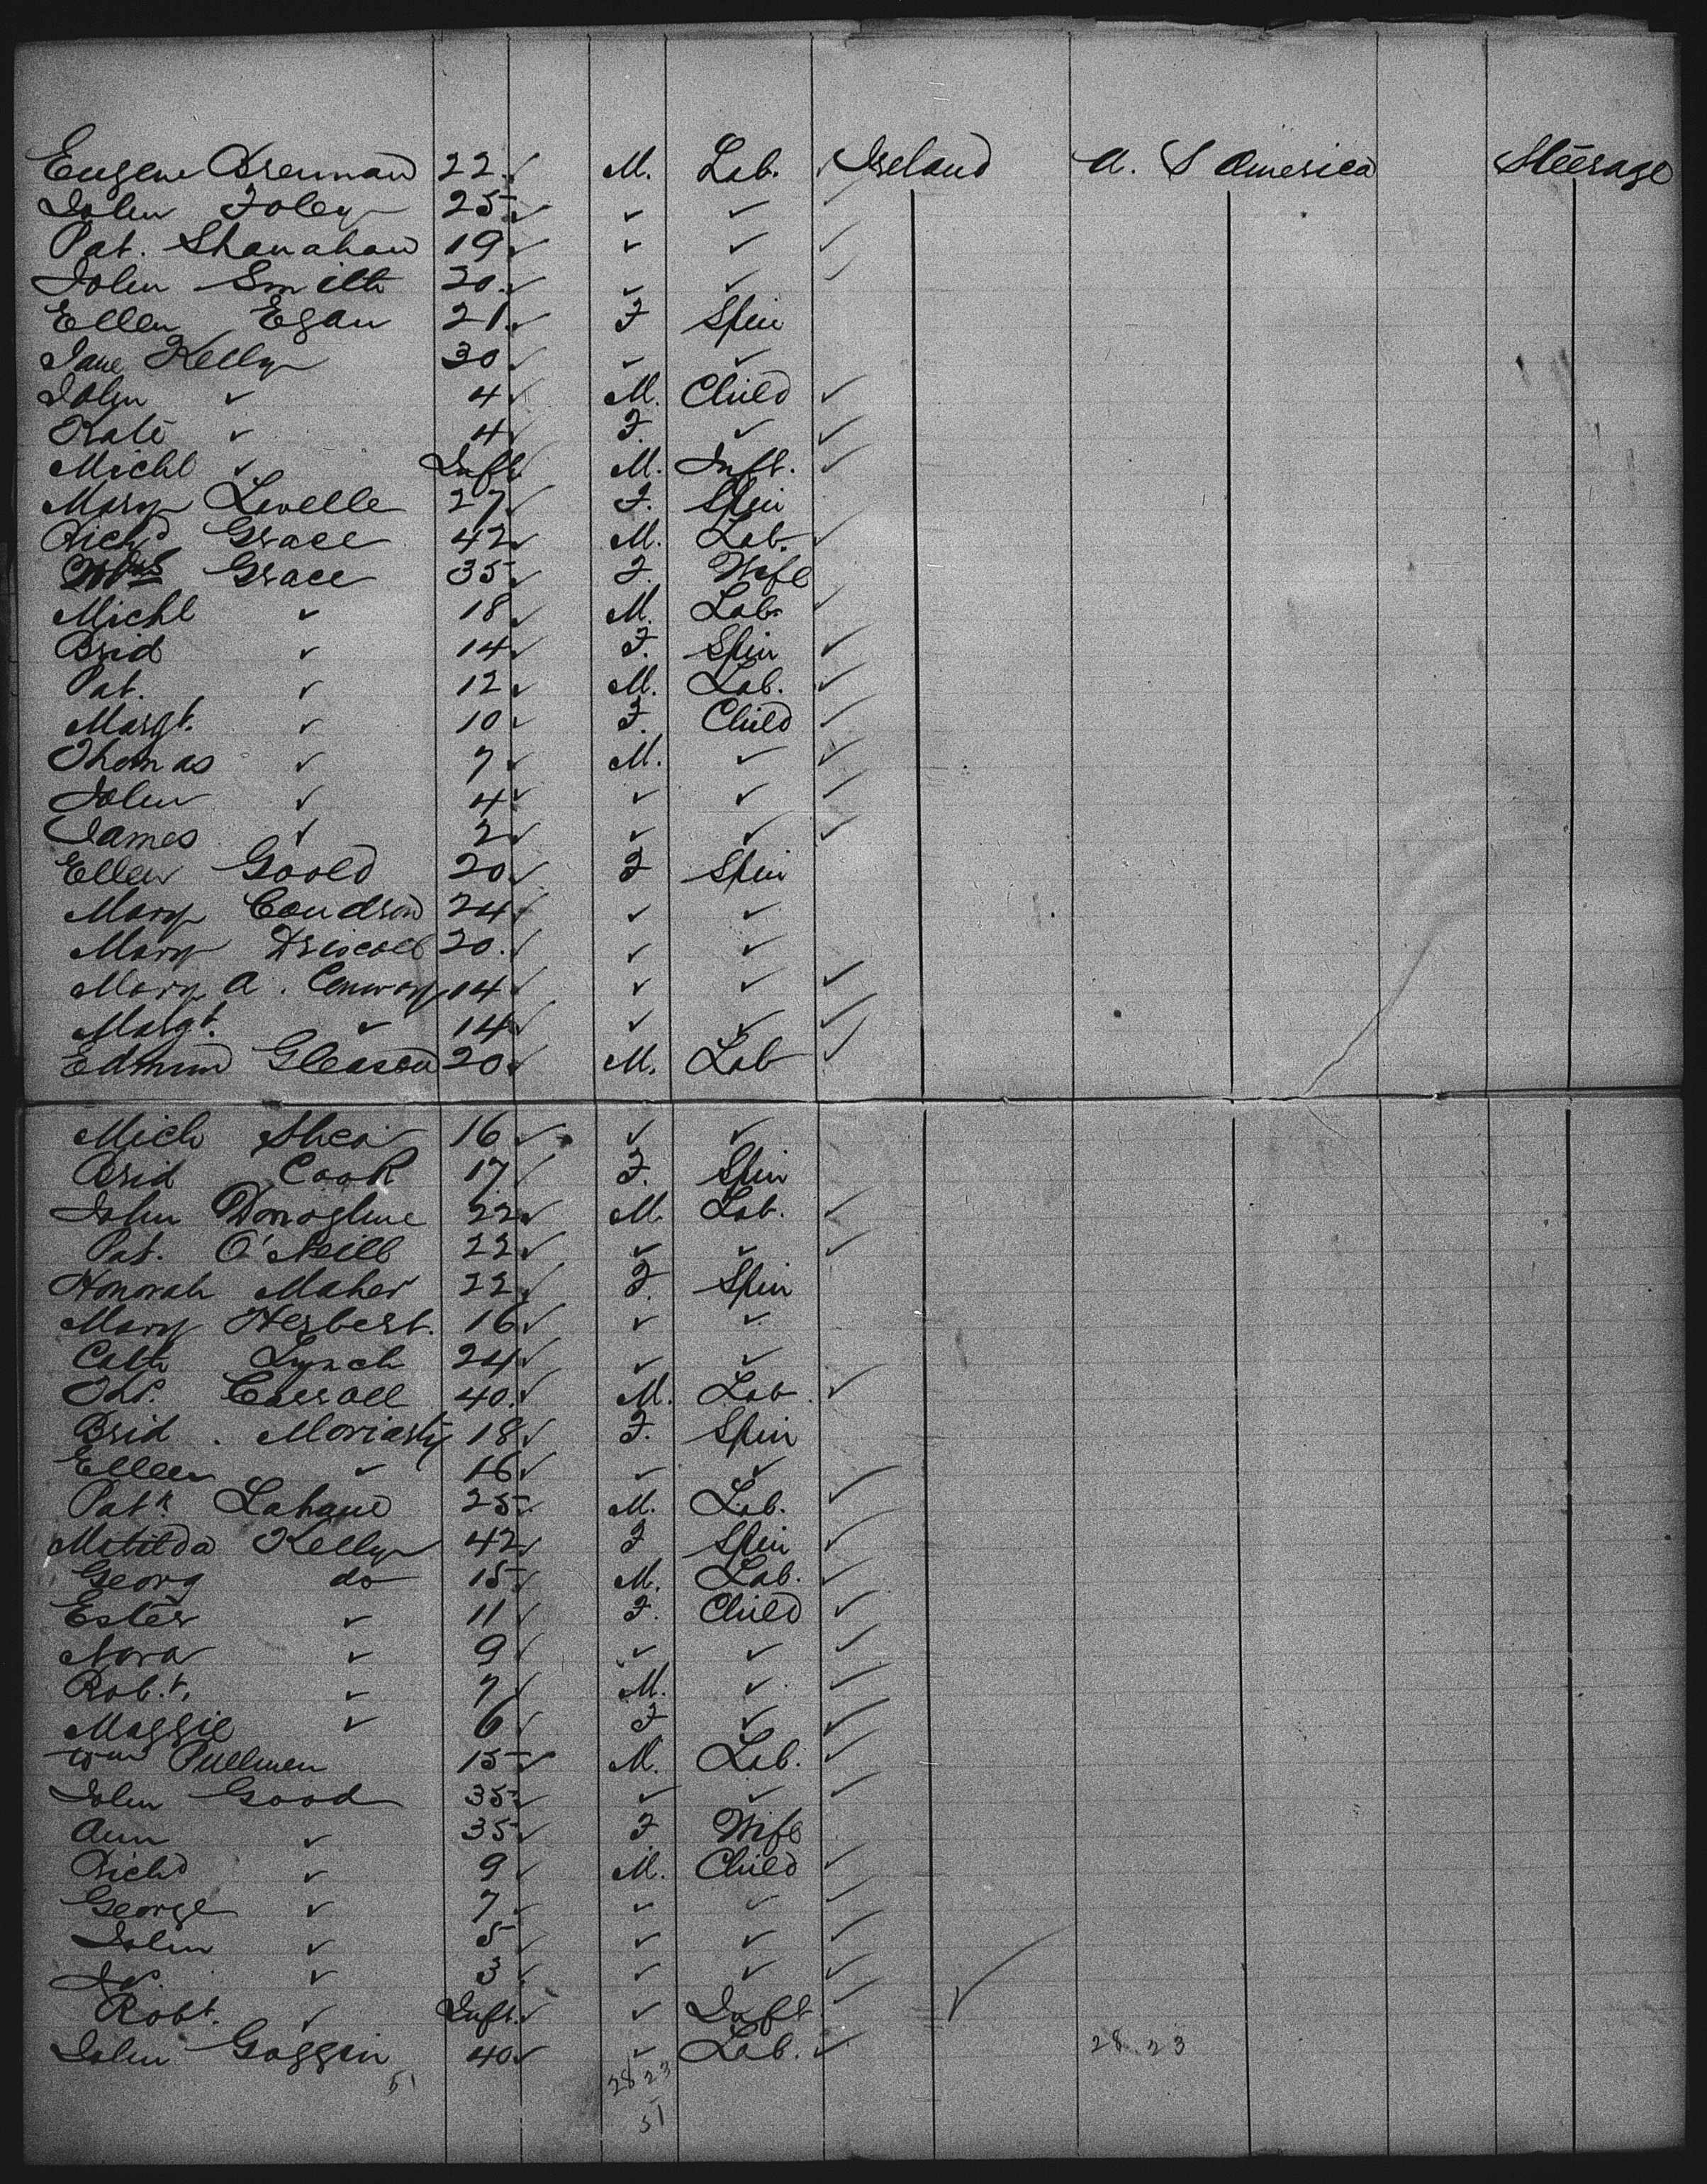 Eugene Brennan 22 ✓ M. Lab. ✓ Ireland U. S America Steerage
John Foley 25 ✓ ✓ ✓ ✓
Pat. Shanahan 19 ✓ ✓ ✓ ✓
John Smith 20 ✓ ✓ ✓ ✓
Ellen Egan 21 ✓ F Spin
Jane Kelly 30 ✓ ✓ ✓
John ✓ 4 ✓ M. Child ✓
Kate ✓ 4 ✓ F. ✓ ✓
Michl ✓ Inft ✓ M. Inft. ✓
Mary Levelle 27 ✓ F. Spin
Richd Grace 42 ✓ M. Lab. ✓
Grace 35 ✓ F. Wife
Michl ✓ 18 ✓ M. Lab. ✓
Brid ✓ 14 ✓ F. Spin ✓
Pat. ✓ 12 ✓ M. Lab. ✓
Margt. ✓ 10 ✓ F. Child ✓
Thomas ✓ 7 ✓ M. ✓ ✓
John ✓ 4 ✓ ✓ ✓ ✓
James ✓ 2 ✓ ✓ ✓ ✓
Ellen Goold 20 ✓ F Spin
Mary Condron 24 ✓ ✓ ✓
Mary Driscoll 20. ✓ ✓ ✓
Mary A. Conway 14 ✓ ✓ ✓ ✓
Margt. ✓ 14 ✓ ✓ ✓ ✓
Edmund Gleason 20 ✓ M. Lab ✓
Mich Shea 16 ✓ ✓ ✓
Brid Cook 17 ✓ F. Spin
John Donoghue 22 ✓ M. Lab. ✓
Pat. O'Neill 22 ✓ ✓ ✓ ✓
Honorah Maher 22 ✓ F. Spin
Mary Herbert. 16 ✓ ✓ ✓
Cath Lynch 24 ✓ ✓ ✓
Ths. Carroll 40. ✓ M. Lab ✓
Brid. Moriarty 18 ✓ F. Spin
Ellen ✓ 16 ✓ ✓ ✓
Patk. Lahane 25 ✓ M. Lab. ✓
Mitilda Kelly 42 ✓ F Spin ✓
Georg do 15 ✓ M. Lab. ✓
Ester ✓ 11 ✓ F. Child ✓
Nora ✓ 9 ✓ ✓ ✓ ✓
Rob.t. ✓ 7 ✓ M. ✓ ✓
Maggie ✓ 6 ✓ F ✓ ✓
Wm Pullmen 15 ✓ M. Lab. ✓
John Good 35 ✓ ✓ ✓ ✓
Ann ✓ 35 ✓ F Wife
Richd ✓ 9 ✓ M. Child ✓
George ✓ 7 ✓ ✓ ✓ ✓
John ✓ 5 ✓ ✓ ✓ ✓
✓ 3 ✓ ✓ ✓ ✓
Robt. ✓ Inft. ✓ ✓ Inft ✓ ✓
John Goggin 40 ✓ ✓ Lab. ✓ 28 23
51 28 23
51